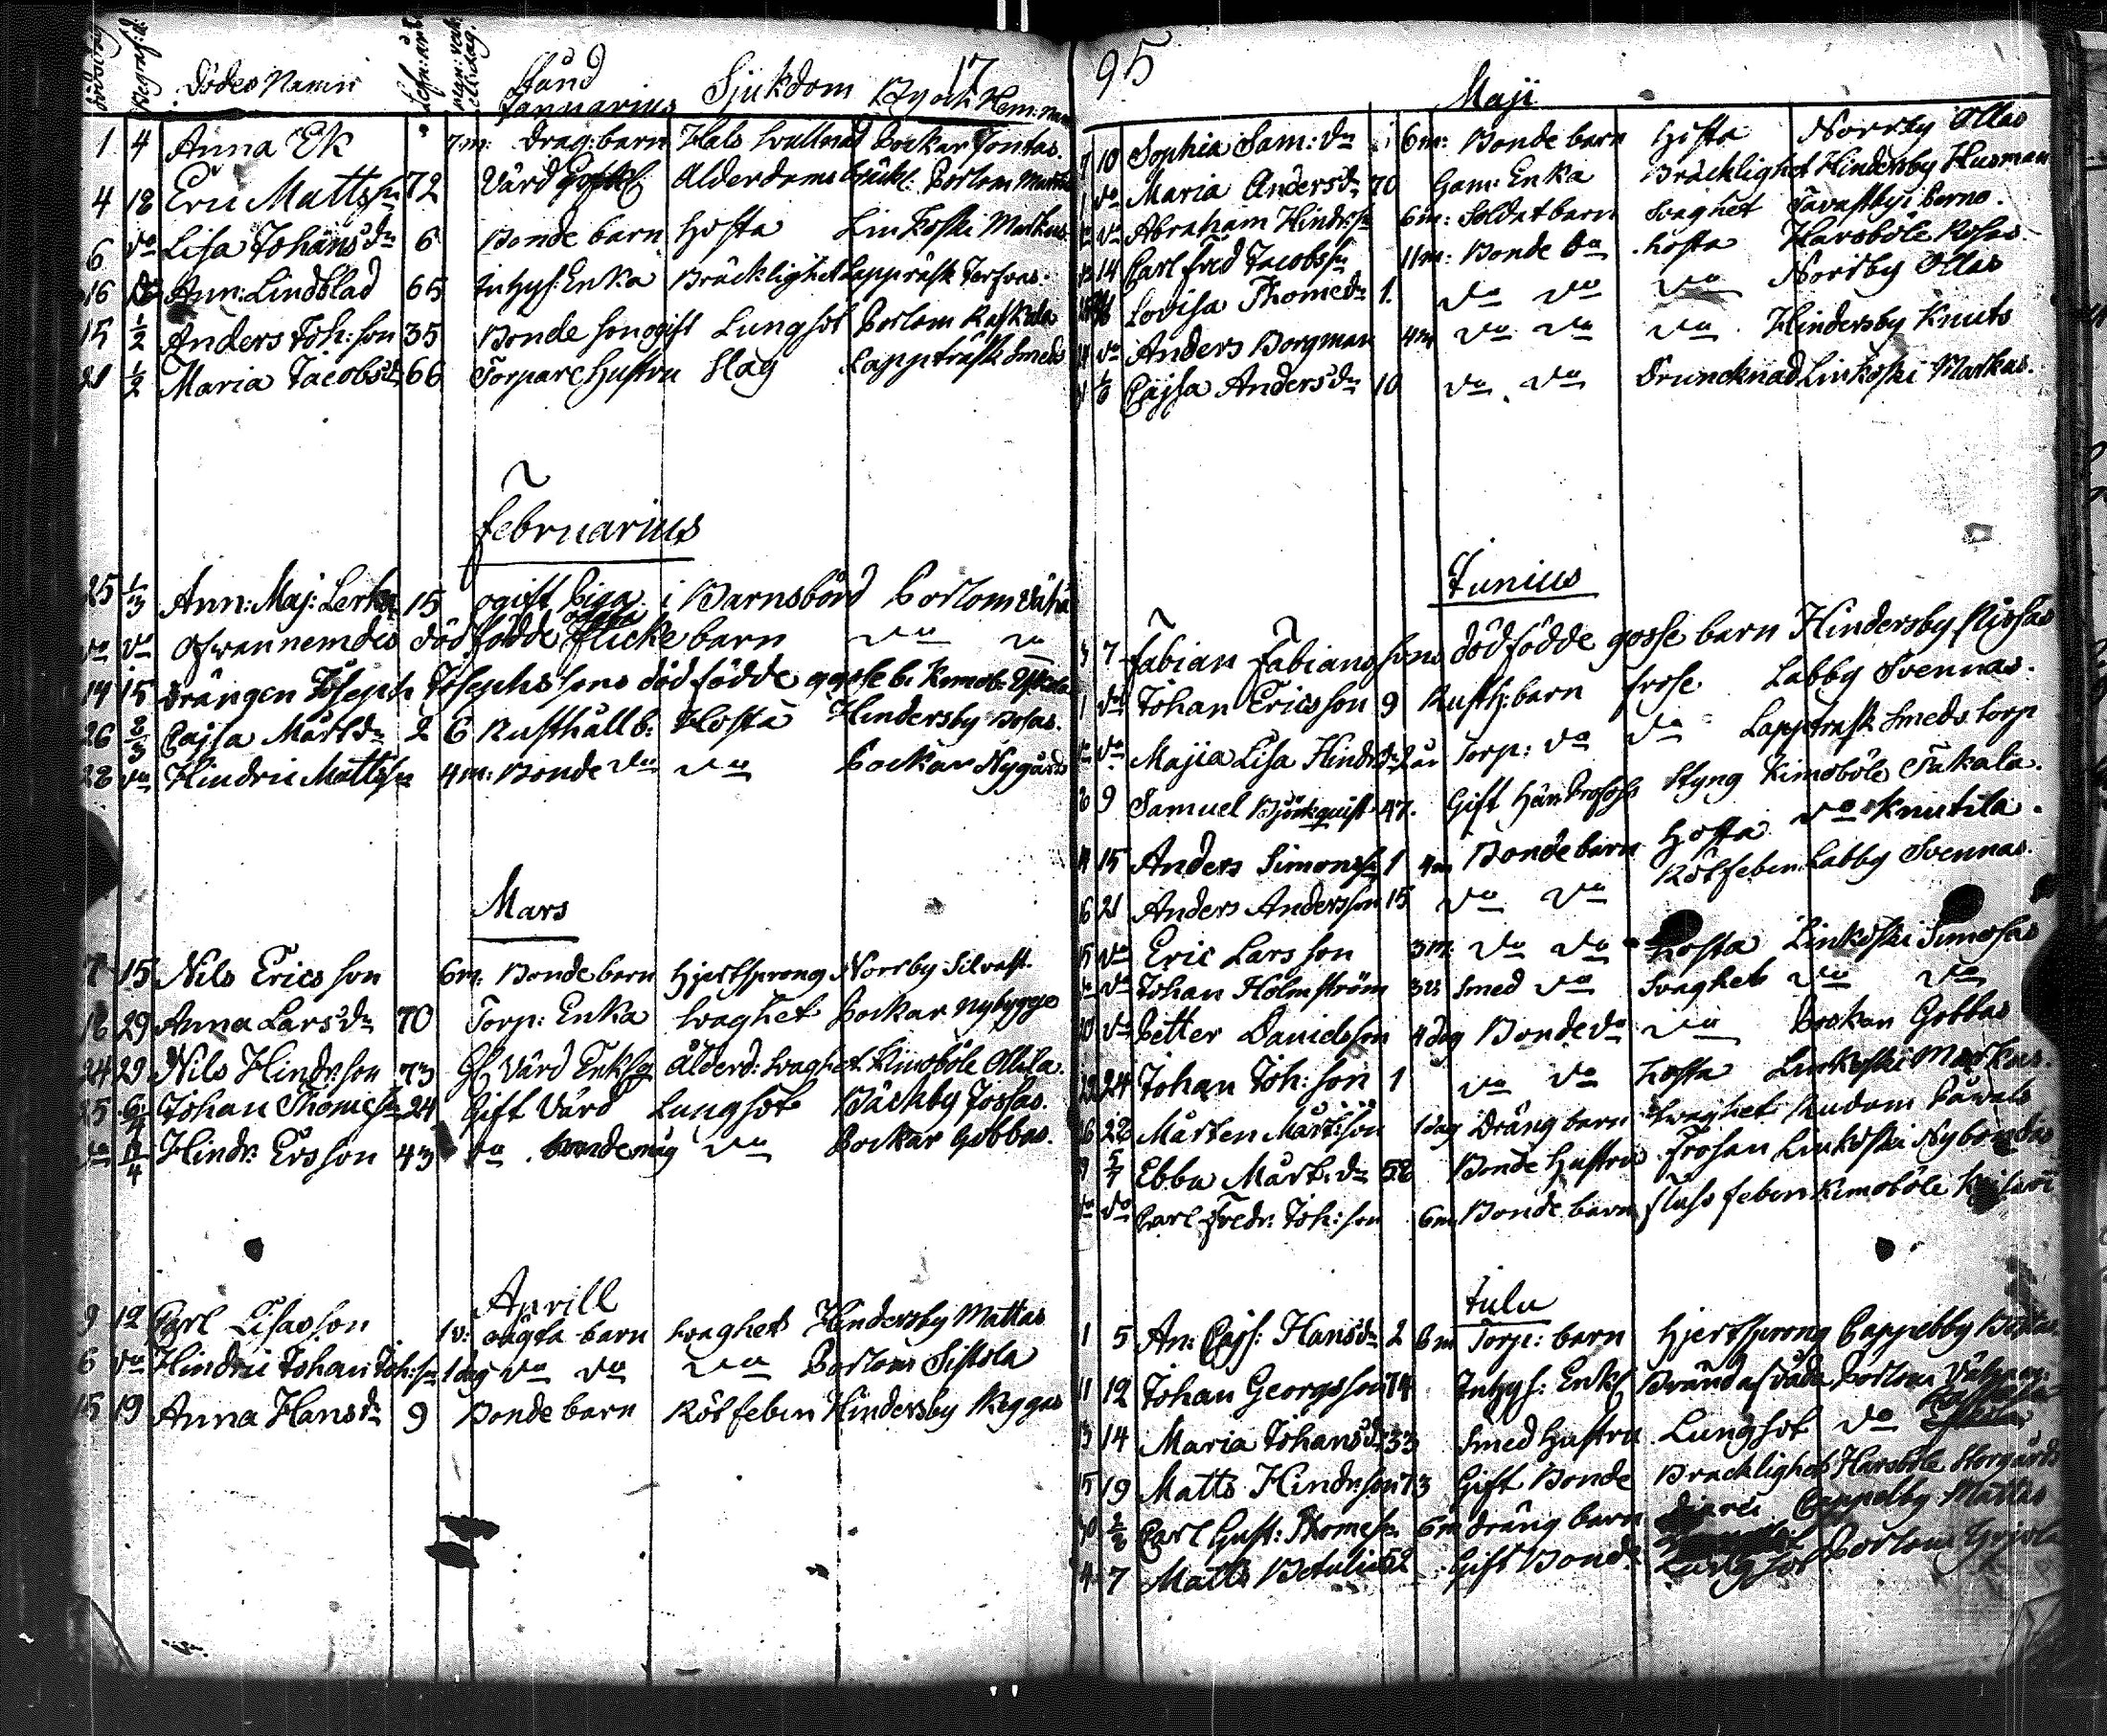 Dödes Namn Stånd Sjukdom By och Hem: 17
Januarius
1 4 Anna Ek 7m: Drag: barn Hals Svullnad Porkar Jontas.
4 18 Eric Mattss: 72 Vård Ålderdoms bräckl: Porlom
6 do Lisa Johansdr 6 Bonde barn Hosta Linkoski Markus.
16 Ann: Lindblad 65 Inhys: Enka Bräcklighet Lappträsk
15 1/2 Anders Joh:son 35 Bonde son ogift Lungsot Porlom Raskala
21 1/2 Maria Jacobsdr 66 Torpare Hustru Slag Lappträsk Smeds
Februarius
25 1/3 Ann: Maj: Lerk 15 ogift Piga i Barnsbörd Porlom
do do Ofvannemdes dödfödde oägta flicke barn do do
14 15 Drängen Joseph Josephssons dödfödde gosse b. Kimob:
26 8/3 Cajsa Mårtdr 2 6 Rusthåll b: Hosta Hindersby Bosas.
28 do Hindric Mattss: 4m: Bonde do do Pockar Nygårds
Mars
7 15 Nils Ericsson 6m. Bonde barn Hjertsprong Norrby Silvast.
18 29 Anna Larsdr 70 Torp: Enka Svaghet Pockar Nybygge
24 29 Nils Hindr:son 73 Gl Vård Enkl Ålderd: Svaghet Kimoböle Ollila.
25 6/4 Johan Thomess: 24 Gift Vård Lungsot Bäckby Jossas.
do 4 Hindr: Ersson 43 do Bondemåg do Pockar Gobbas.
Aprill
9 12 Carl Lisasson 1v: oägta barn Svaghet Hindersby Mattas
6 do Hindric Johan Joh:sn 1 dag do do do Porlom Sistola
15 19 Anna Hansdr 9 Bonde barn Rötfeber Hindersby Reggas
95
Maji
7 10 Sophia Sam:dr 6m: Bonde barn Hosta Norrby Ollas
do Maria Andersdr 70 Gam: Enka Bräcklighet Hindersby Husman
do Abraham Hindr:sn 6m: Soldat barn Svaghet Tavastby i Perno.
14 Carl Fred Jacobssn 11m: Bonde do Hosta Harsböle Rosas.
Lovisa Thomedr 1. do do do Norrby Ollas
do Anders Borgman 4m do do do Hindersby Knuts
Cajsa Andersdr 10 do do Druncknad Linkoski Markus.
Junius
3 7 Fabian Fabianssons dödfödde gosse barn Hindersby Nissas
1 do Johan Ericsson 9 Rusth: barn Frose Labby Svennas.
do Majia Lisa Hindr:dr 2 år Torp: do do Lappträsk Smeds torp
8 9 Samuel Björkquist 47. Gift Styng Kimoböle Tukala.
11 15 Anders Simonssn 1 4m Bonde barn Hosta do Knutila.
6 21 Anders Andersson 15 do do Rötfeber Labby Svennas.
15 do Eric Larsson 3m: do do Hosta Linkoski Simosas
do Johan Holmström 3v Smed do Svaghet do do
20 do Petter Danielsson 4 dag Bonde do do Pockar Gobbas
22 24 Johan Joh:son 1 do do Hosta Linkoski Markus.
26 28 Mårten Mårt:son 1 dag Dräng barn Svaghet Rudom Påwals
5/7 Ebba Mårt:dr 58 Bonde Hustru Frosan Linkoski Nybondas
do do Carl Fredr: Joh:son 6m Bonde barn Fluss feber Kimoböle
Julii
1 5 An: Cajs: Hansdr 2 6m Torp: barn Hjertsprong Cappelby
11 12 Johan Georgsson 74 Inhys: Enkl Brändasvåda Porlom
13 14 Maria Johansdr 33 Smed Hustru Lungsot do
15 19 Matts Hindr:son 73 Gift Bonde Bräcklighet Harsböle Storgårds
30 2/8 Carl Gust: Thomesn 6m Dräng barn Cappelby Mattas
4 7 Matts Betulin 52 Gift Bonde Lungsot Porlom